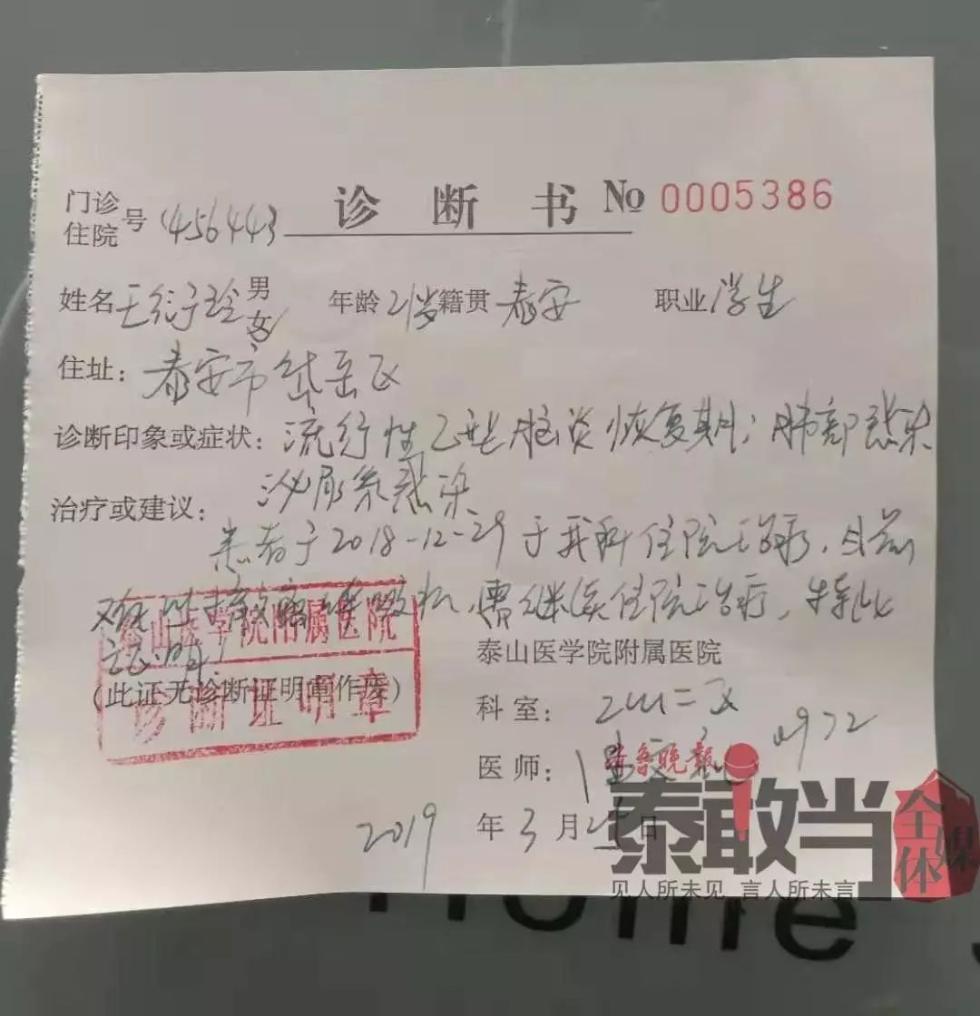 诊断书 № 0005386
门诊
住院 号 456443
姓名 王衍玲 男
女 年龄 21岁 籍贯 泰安 职业 学生
住址：泰安市岱岳区
诊断印象或症状：流行性乙型脑炎恢复期；肺部感染
泌尿系感染
治疗或建议：
患者于2018-12-29于我科住院治疗，目前
难以摘离呼吸机，需继续住院治疗，特此
证明。
泰山医学院附属医院
诊断证明章
泰山医学院附属医院
(此证无诊断证明章作废)
科室：ICU二区
医师：
2019 年 3 月 日
齐鲁晚报
泰敢当
全媒体
见人所未见 言人所未言
Home